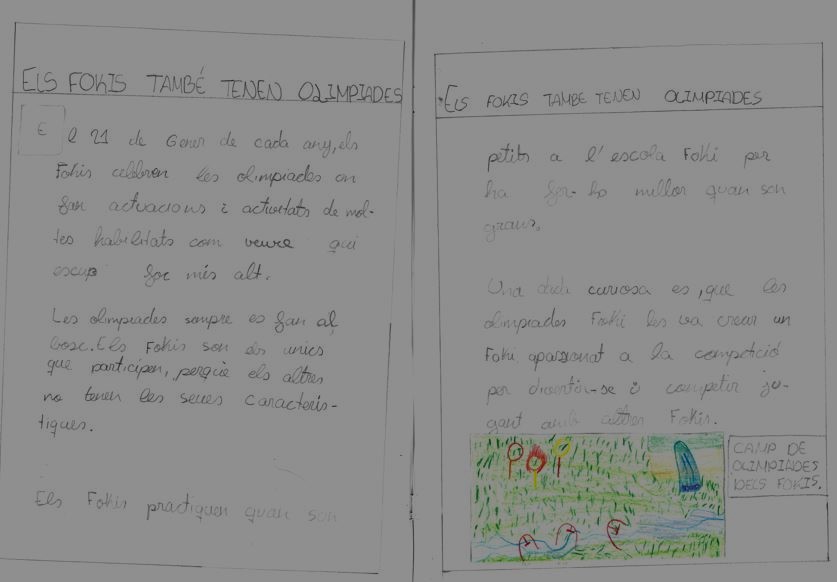 ELS FOKIS TAMBÉ TENEN OLIMPIADES
El 21 de Gener de cada any, els
Fokis celebren les olimpiades on
fan actuacions i activitats de mol-
tes habilitats com veure qui
escup foc més alt.
Les olimpiades sempre es fan al
bosc. Els Fokis son els unics
que participen, perquè els altres
no tenen les seues caracterís-
tiques.
Els Fokis practiquen quan son
ELS FOKIS TAMBE TENEN OLIMPIADES
petits a l'escola Foki per
ha fer-ho millor quan son
grans.
Una dada curiosa es, que les
olimpiades Foki les va crear un
Foki apassionat a la competició
per divertir-se i competir ju-
gant amb altres Fokis.
CAMP DE
OLIMPIADES
DELS FOKIS.